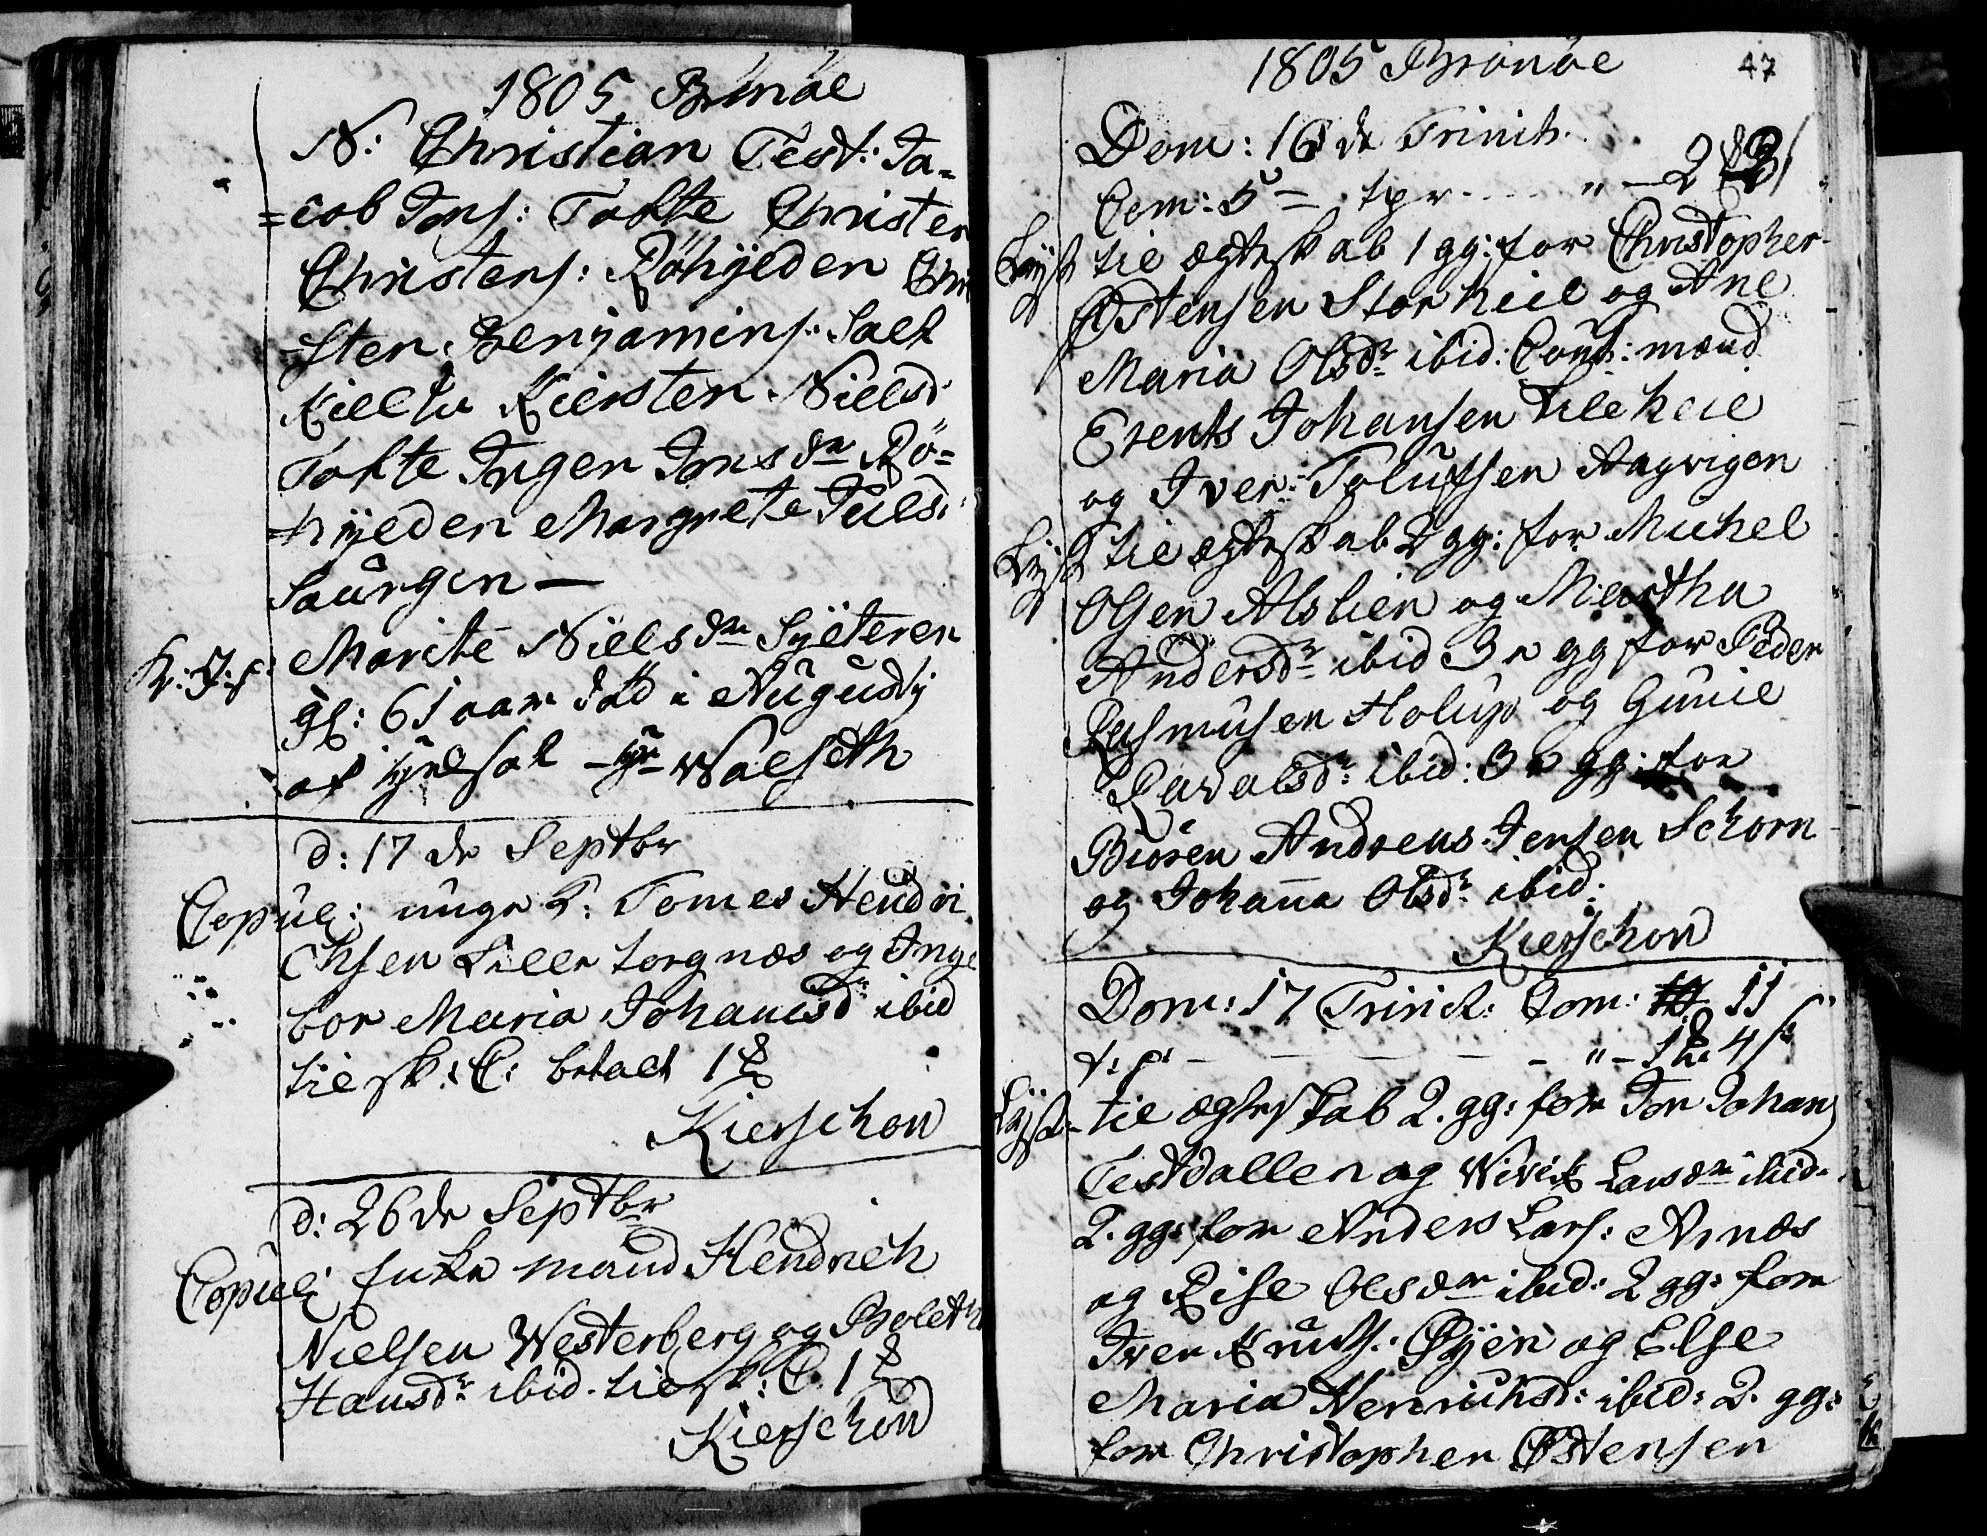 1805 Brönöe
N: Christian Test: Ja=
=cob Jons: Tofte Christen
Christens: Röhÿlden Chri
sten Benjamins: Salt
Kirsten Nielsd:
Tofte Inger Jonsdr Rö=
=hÿlden Margrete
Saurgen —
Marite Nielsdr
gl: 61 aar död i Augustj
af Walseth
d: 17de Septbr
Copul: unge K: Tomes Hendri
chsen Lille torgnæs og Inge
bor Maria Johansdr ibid
til sk: C: betalt 1
Kierschow
d: 26de Septbr
Copul: Enke mand Hendrich
Nielsen Westerberg og Boleth
Hansdr ibid. til sk: C. 1
Kierschow
1805 Brönöe 47
Dom: 16de Trinit.
Com: 5 — tpr - - - " — 2
Lÿst til ægteskab 1 gg: for Christopher
Østensen Storheil og Ane
Maria Olsdr ibid: Caut: mænd
Erents Johansen Lileheil
og Iver Aagvigen
Lÿst til ægteskab 2 gg: for Michel
Olsen Alslien og Martha
Andersdr ibid 3e gg for Peder
Rasmusen Holup og Gunil
ibid: 3e gg: for
Biören Andreas Jensen Schorn
og Johanna Olsdr ibid:
Kierschow
Dom: 17 Trinit: Com: 11
t: p: — — — — — " — 1 4 s
Lÿst til ægteskab 2. gg: for Jon Johans
Testdallen og Larsdr ibid.
2. gg: for Anders Lars: Arnæs
og Olsdr ibid: 2 gg: for
Iver Knuds: Øÿen og Else
Maria Henrichsd: ibid: 2. gg:
for Christopher Østensen